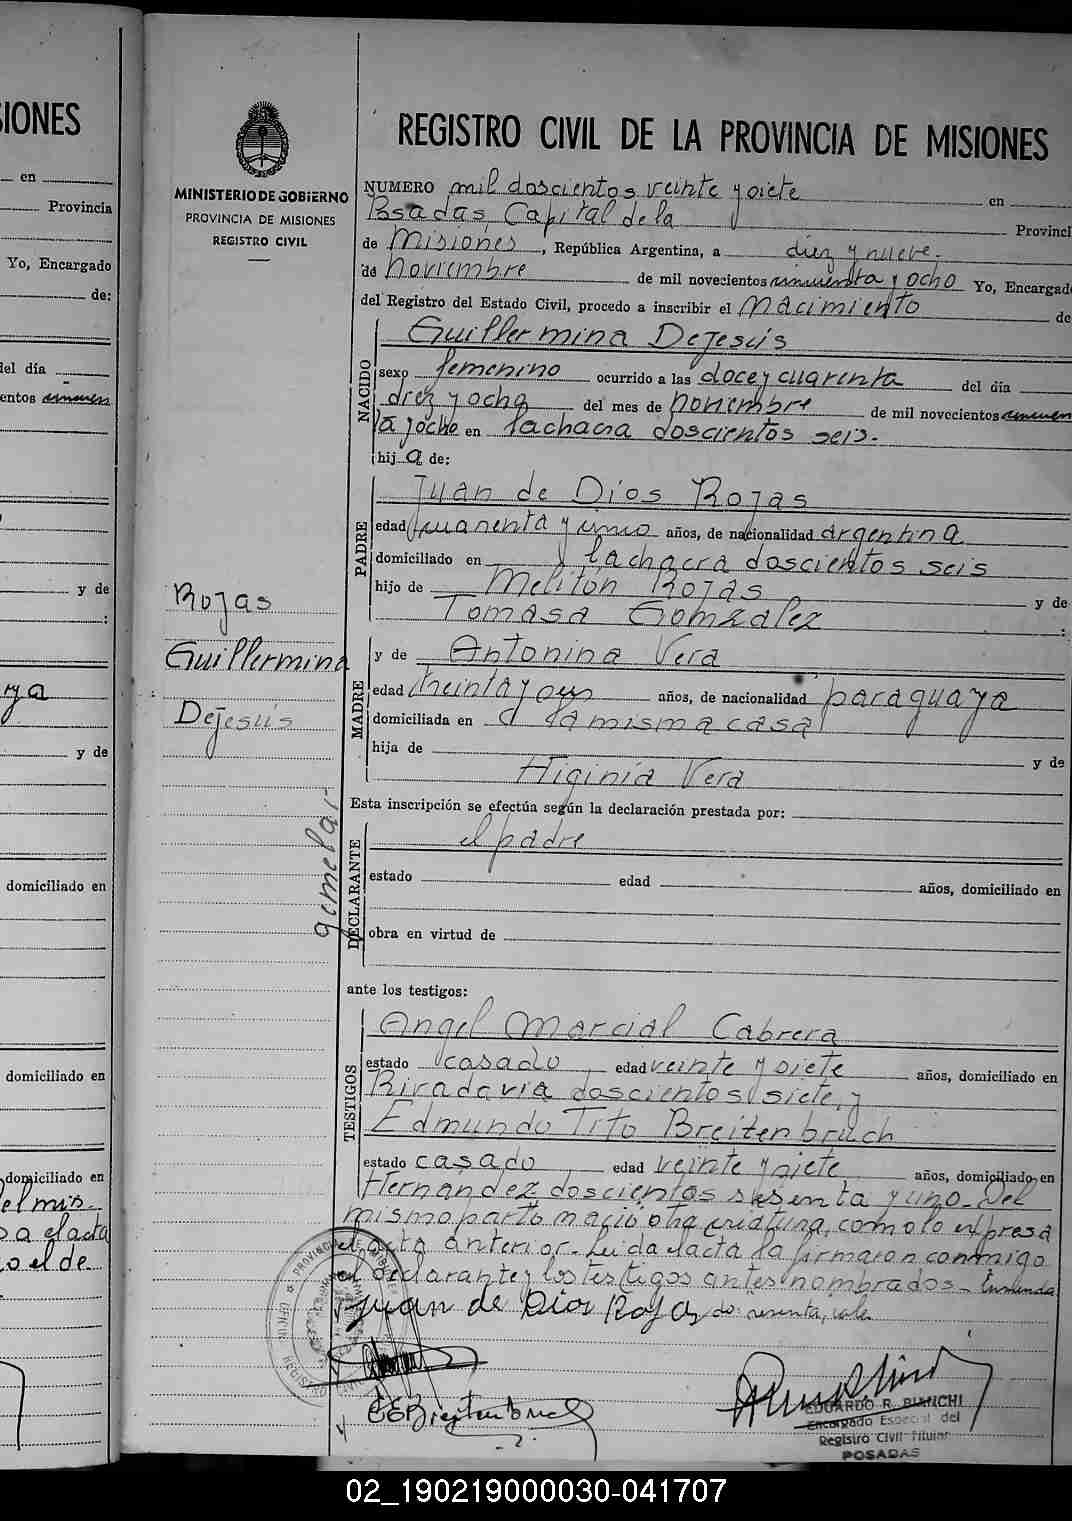 SIONES
en
Provincia
Yo, Encargado
de:
del día
entos cincuen
y de
:
ya
y de
domiciliado en
domiciliado en
domiciliado en
el mis-
o el de
MINISTERIO DE GOBIERNO
PROVINCIA DE MISIONES
REGISTRO CIVIL
Rojas
Guillermina
Dejesús
gemelar
REGISTRO CIVIL DE LA PROVINCIA DE MISIONES
NUMERO mil doscientos veinte y siete en
Posadas, Capital de la Provinci
de Misiones, República Argentina, a diez y nueve.
de noviembre de mil novecientos cincuenta y ocho Yo, Encargad
del Registro del Estado Civil, procedo a inscribir el nacimiento de
NACIDO
Guillermina Dejesús
sexo femenino ocurrido a las doce y cuarenta del día
diez y ocho del mes de noviembre de mil novecientos cincuen
ta y ocho en la chacra doscientos seis.
hija de:
PADRE
Juan de Dios Rojas
edad cuarenta y uno años, de nacionalidad argentina
domiciliado en la chacra doscientos seis
hijo de Melitón Rojas y de
Tomasa González :
MADRE
y de Antonina Vera
edad treinta y años, de nacionalidad paraguaya
domiciliada en la misma casa
hija de y de
Higinia Vera
Esta inscripción se efectúa según la declaración prestada por:
DECLARANTE
el padre
estado edad años, domiciliado en
obra en virtud de
ante los testigos:
TESTIGOS
Angel Marcial Cabrera
estado casado edad veinte y siete años, domiciliado en
Rivadavia doscientos siete, y
Edmundo Tito Breitenbruch
estado casado edad veinte y siete años, domiciliado en
Hernández doscientos sesenta y uno. Del
mismo parto nació otra criatura, como lo expresa
el acta anterior. Leída el acta la firmaron conmigo
el declarante y los testigos antes nombrados. Enmenda
do: vale
Juan de Dios Rojas
EEBreitenbruch
EDUARDO R. BIANCHI
Encargado Especial del
Registro Civil Titular
POSADAS
02_190219000030-041707